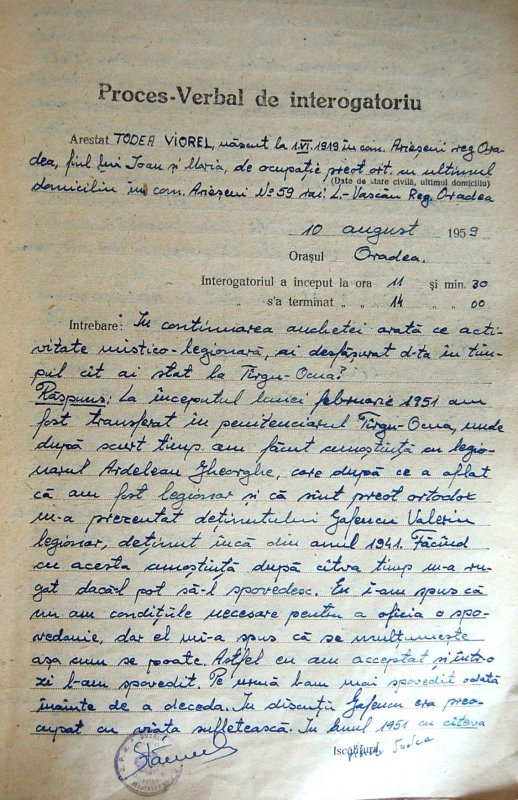 Proces-Verbal de interogatoriu
Arestat TODEA VIOREL, născut la 1.VI.1919 în com. Arieșeni reg. Ora-
dea, fiul lui Ioan și Maria, de ocupație preot ort. cu ultimul
(Data de stare civilă, ultimul domiciliu)
domiciliu în com. Arieșeni No 59 rai. L.-Vascău Reg. Oradea
10 august 1959
Orașul Oradea.
Interogatoriul a început la ora 11 și min. 30
" s'a terminat " " 14 " " 00
Intrebare: In continuarea anchetei arată ce acti-
vitate mistico-legionară, ai desfășurat d-ta în tim-
pul cît ai stat la Tîrgu-Ocna?
Răspuns: La începutul lunei februarie 1951 am
fost transferat în penitenciarul Tîrgu-Ocna, unde
după scurt timp am făcut cunoștință cu legio-
narul Ardelean Gheorghe, care după ce a aflat
că am fost legionar și că sînt preot ortodox
m-a prezentat deținutului Gafencu Valeriu
legionar, deținut încă din anul 1941. Făcînd
cu acesta cunoștință după cîtva timp m-a ru-
gat dacă-l pot să-l spovedesc. Eu i-am spus că
nu am condițiile necesare pentru a oficia o spo-
vedanie, dar el mi-a spus că se mulțumește
așa cum se poate. Astfel eu am acceptat și într-o
zi l-am spovedit. Pe urmă l-am mai spovedit odată
înainte de a deceda. In discuții Gafencu era preo-
cupat cu viața sufletească. In anul 1951 cu cîteva
Iscălitura Todea